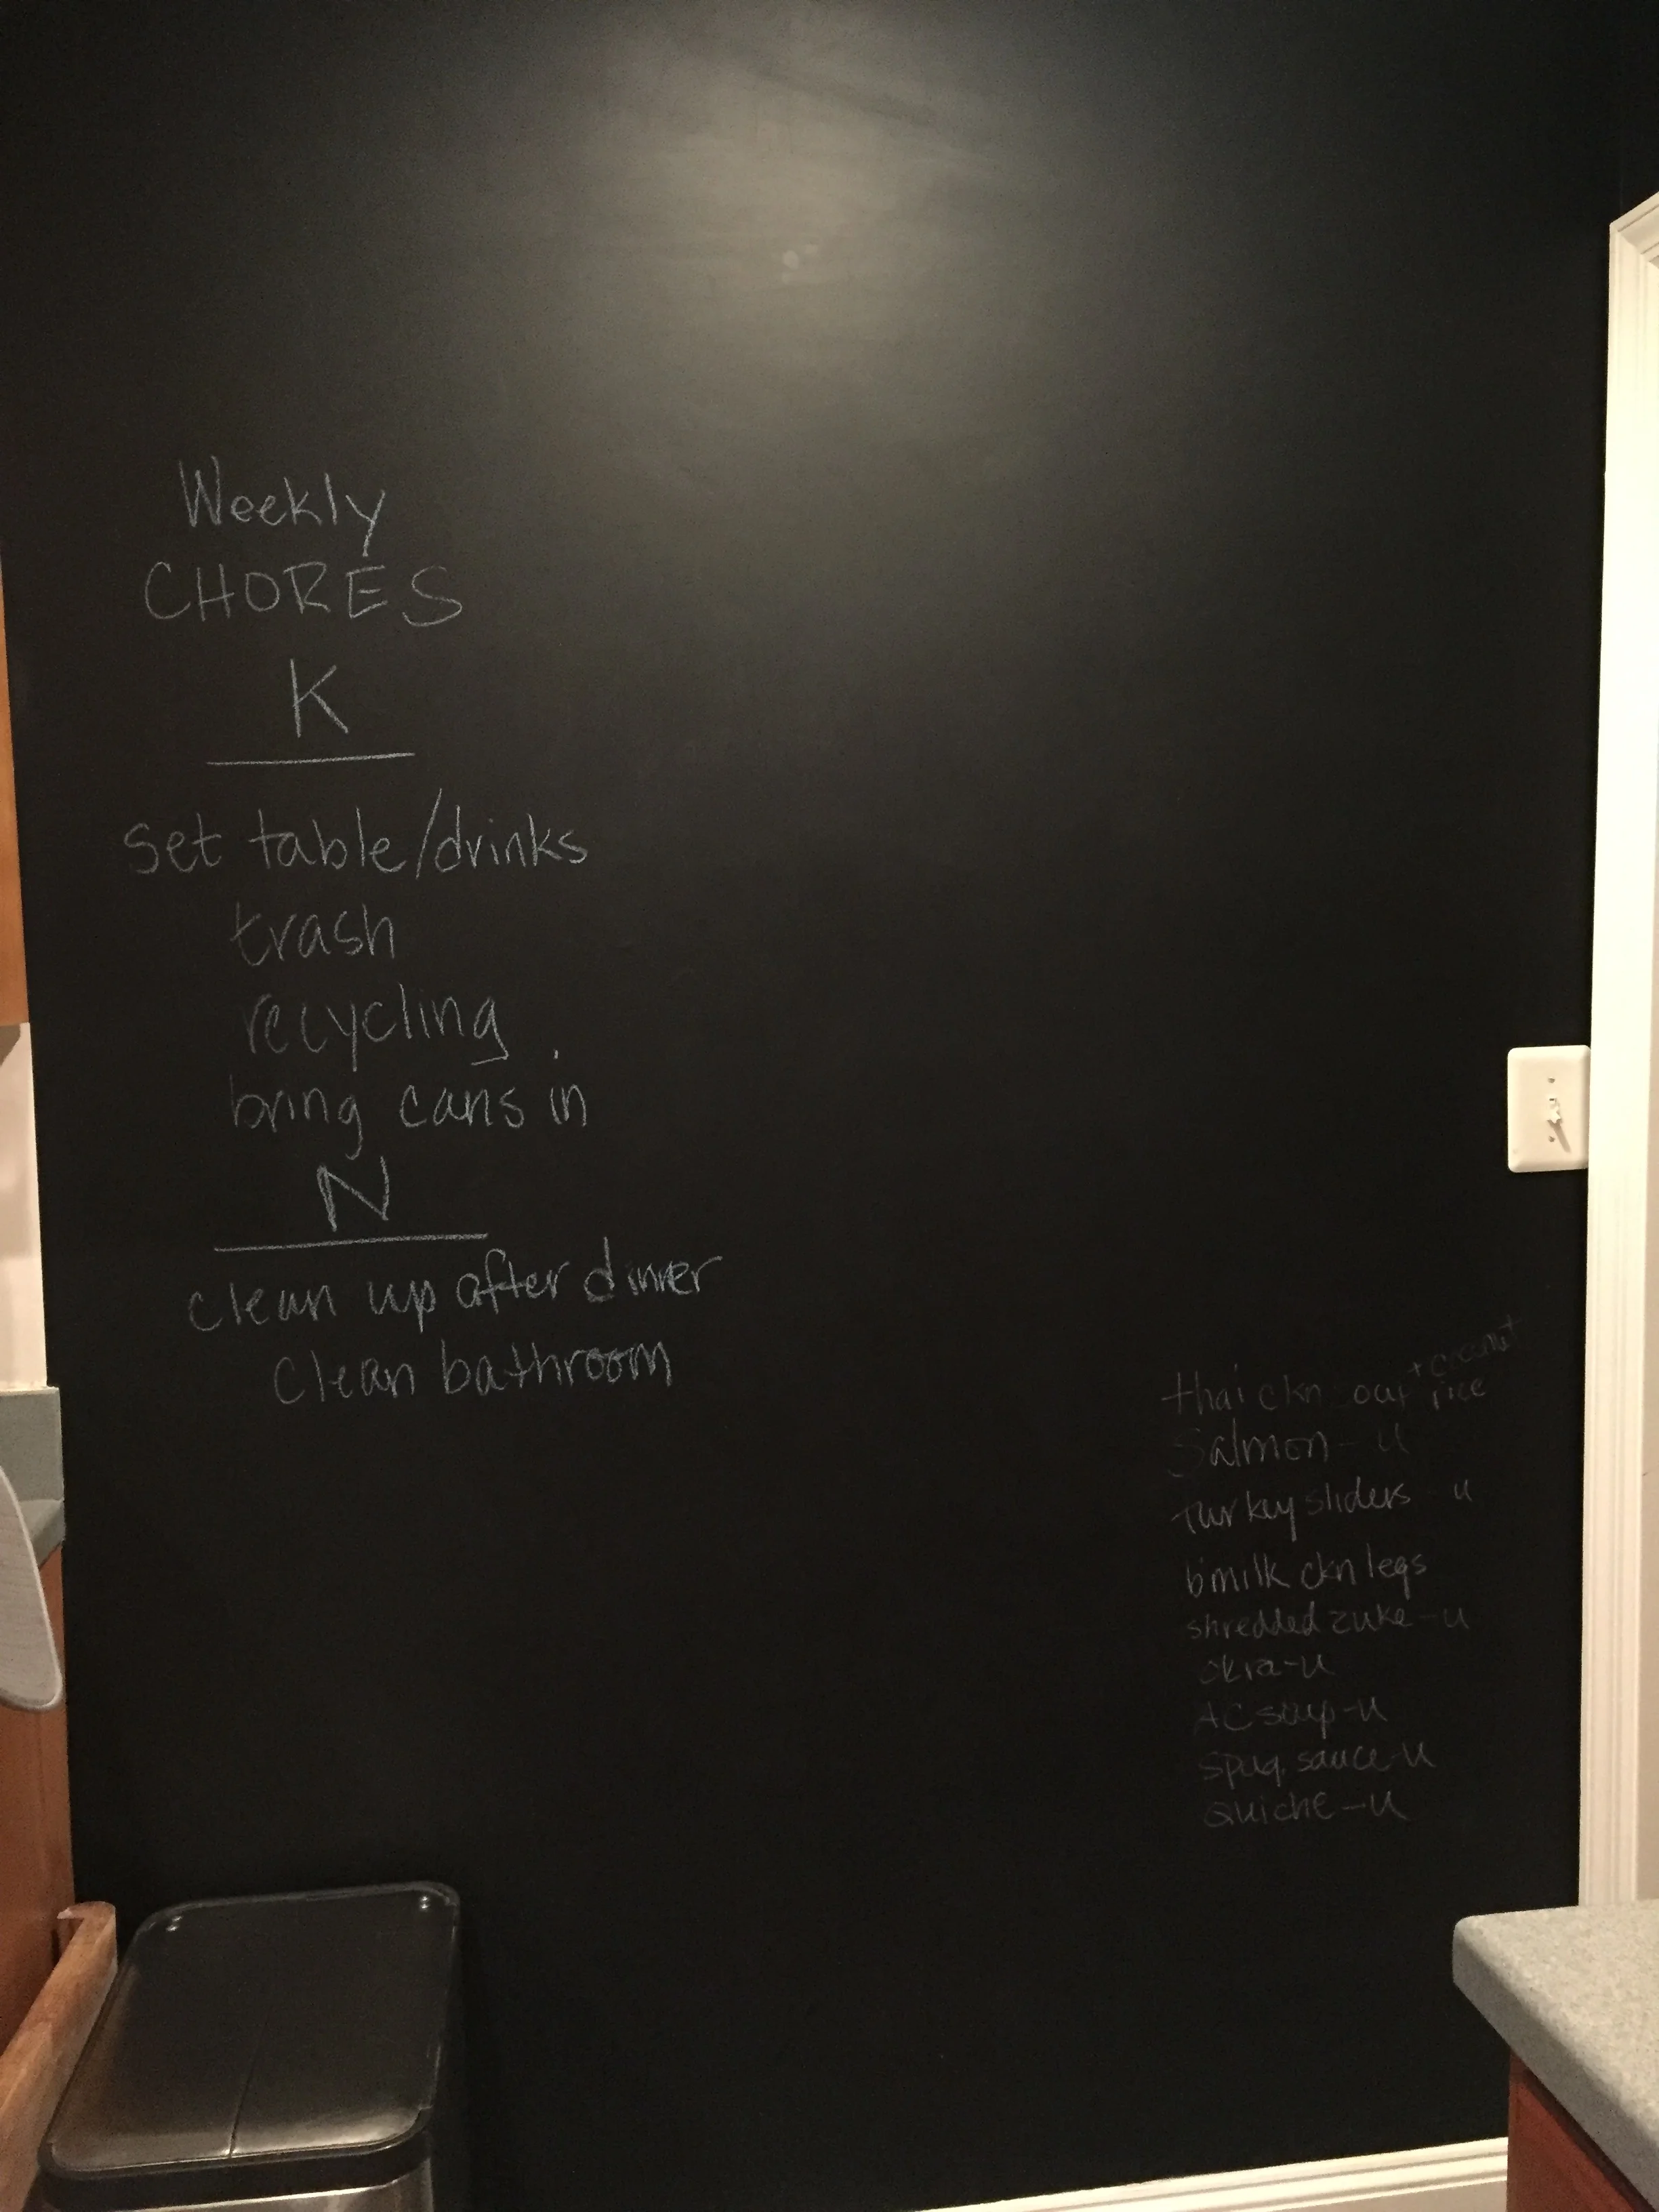 Weekly
CHORES
K
set table/drinks
trash
recycling
bring cans in
N
clean up after dinner
clean bathroom
thai ckn soup + coconut
rice
Salmon - u
turkey sliders u
b'milk ckn legs
shredded zuke - u
okra - u
AC soup - u
spag. sauce - u
Quiche - u